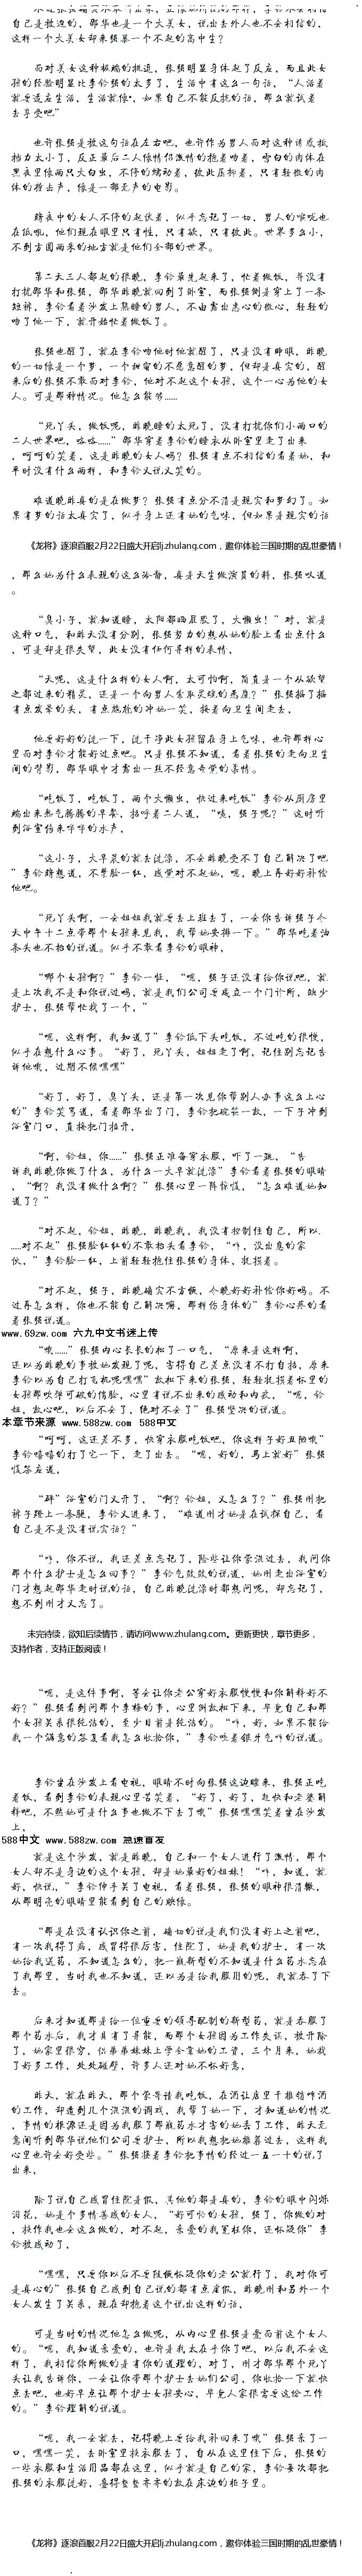 自己是被迫的，邵华也是一个大美女，说出去外人也不会相信的，
这样一个大美女却来强暴一个不起的高中生？
而对美女这种极端的挑逗，张强明显身体起了反应，而且此女
孩的经验明显比李铃强的太多了，生活中有这么一句话，“人活着
就要适应生活，生活就像，如果自己不能反抗的话，那么就试着
去享受吧”
也许张强是被这句话在左右吧，也许作为男人面对这种诱惑抵
挡力太小了，反正最后二人像情侣激情的抱着吻着，雪白的肉体在
黑夜里像两只大白虫，不停的蠕动着，彼此压抑着，只有轻微的肉
体的撞击声，像是一部无声的电影。
第二天三人都起的很晚，李铃最先起来了，忙着做饭，并没有
打扰邵华和张强，邵华昨晚就回到了卧室，而张强倒是穿上了一条
短裤，李铃看着沙发上熟睡的男人，不由露出会心的微笑，轻轻的
吻了他一下，就开始忙着做饭了。
张强也醒了，就在李铃吻他时他就醒了，只是没有睁眼，昨晚
的一切像是一个梦，一个甜蜜的不愿意醒的梦，但却是真实的，醒
来后的张强不敢面对李铃，他对不起这个女孩，这个一心为他的女
人。可是那种情况。他怎么能够……
“死丫头，做饭呢，昨晚睡的太死了，没有打扰你们小两口的
二人世界吧，咯咯……”邵华穿着李铃的睡衣从卧室里走了出来
，呵呵的笑着，这是昨晚的女人吗？张强有点不相信的看着她，和
平时没有什么两样，和李铃又说又笑的。
难道晚昨真的是在做梦？张强有点分不清是现实和梦幻了。如
果有梦的话太真实了，似乎身上还有她的气味，但如果是现实的话
《龙将》逐浪首服2月22日盛大开启lj.zhulang.com，邀你体验三国时期的乱世豪情！
，那么她为什么表现的这么冷静，真是天生做演员的料，张强叹道
。
“臭小子，就知道睡，太阳都晒屁股了，大懒虫！”对，就是
这种口气，和昨天没有分别，张强努力的想从她的脸上看出点什么
，可是却是很失望，此女没有任何异样的表情，
“天呢，这是什么样的女人啊，太可怕啊，简直是一个从欲望
之都过来的精灵，还是一个向男人索取灵魂的恶魔？”张强摇了摇
有点发晕的头，有点尴尬的冲她一笑，接着向卫生间走去，
他要好好的洗一下，洗干净此女孩留在身上气味，也许那样心
里面对李铃才能好过点吧。只是张强不知道，看着张强的走向卫生
间的背影，邵华眼中才露出一丝不轻意察觉的柔情。
“吃饭了，吃饭了，两个大懒虫，快过来吃饭”李铃从厨房里
端出来热气腾腾的早餐，招呼着二人道，“咦，强子呢？”这时听
到浴室传来哗哗的水声，
“这小子，大早晨的就去洗澡，不会昨晚受不了自己解决了吧
”李铃暗想道，不禁脸一红，感觉对不起她，嗯，晚上再好好补偿
他吧。
“死丫头啊，一会姐姐我就要去上班去了，一会你告诉强子今
天中午十二点带那个女孩来见我，我帮她安排一下。”邵华吃着油
条头也不抬的说道。似乎不敢看李铃的眼神，
“哪个女孩啊？”李铃一怔，“嗯，强子还没有给你说吧，就
是上次我不是和你说过吗，就是我们公司要成立一个门诊所，缺少
护士，张强帮忙找了一个，”
“嗯，这样啊，我知道了”李铃低下头吃饭，不过吃的很慢，
似乎在想什么心事。“好了，死丫头，姐姐走了啊，记住别忘记告
诉他哦，过期不候嘿嘿”
“好了，好了，臭丫头，还是第一次见你帮别人办事这么上心
的”李铃笑骂道，看着邵华出了门，李铃把碗筷一放，一下子冲到
浴室门口，直接把门推开，
“啊，铃姐，你……”张强正准备穿衣服，吓了一跳，“告
诉我昨晚你做了什么，为什么一大早就洗澡”李铃看着张强的眼睛
，“啊？我没有做什么啊？”张强心里一阵惊慌，“怎么难道她知
道了？”
“对不起，铃姐，昨晚，昨晚我，我没有控制住自己，所以.
……对不起”张强脸红红的不敢抬头看李铃，“咋，没出息的家
伙，”李铃脸一红，上前轻轻抱住张强的身体，抚摸着。
“对不起，强子，昨晚确实不方便，今晚好好补偿你好吗。不
过再怎么样，你也不能自己解决嘛，那样伤身体的”李铃心疼的看
着张强说道。
www.69zw.com 六九中文书迷上传
“哦……”张强内心长长的松了一口气，“原来是这样啊，
还以为昨晚的事被她发现了呢，害得自己差点没有不打自招，原来
李铃以为自己打飞机呢嘿嘿”放松下来的张强，轻轻抚摸着怀里的
女孩那吹弹可破的俏脸，心里有说不出来的感动和内疚，“嗯，铃
姐，放心吧，以后不会了，绝对不会了”张强坚决的说道。
本章节来源 www.588zw.com 588中文
“呵呵，这还差不多，快穿衣服吃饭吧，你这样子好丑陋哦”
李铃嘻嘻的打了它一下，走了出去。“嗯，好的，马上就好”张强
慌答应道，
“砰”浴室的门又开了，“啊？铃姐，又怎么了？”张强刚把
裤子蹬上一条腿，李铃又进来了，“难道刚才她是在试探自己，看
自己是不是没有说实话？”
“咋，你不说，我还差点忘记了，险些让你蒙混过去，我问你
那个什么护士是怎么回事？”李铃气鼓鼓的说道，她刚走出浴室的
门才想起邵华走时说的话，自己昨晚洗澡时都想问呢，却忘记了，
想不到刚才又忘了。
未完待续，欲知后续情节，请访问www.zhulang.com。更新更快，章节更多，
支持作者，支持正版阅读！
“嗯，是这件事啊，等会让你老公穿好衣服慢慢和你解释好不
好？”张强看到问那个李梅的事，心里倒放松下来，毕竟自己和那
个女孩关系很纯洁的，至少目前是纯洁的。“咋，好，如果不能给
我一个满意的答复看我怎么收拾你，”李铃咬着银牙气哼的说道。
李铃坐在沙发上看电视，眼睛不时向张强这边瞟来，张强正吃
着饭，看到李铃的表现心里苦笑着，“好了，好了，赶快和老婆解
释吧，不然她可是什么事也做不下去了哦”张强嘿嘿笑着坐在沙发
上，
588中文 www.588zw.com 急速首发
就是这个沙发，就是昨晚，自己和一个女人进行了激情，那个
女人却不是身边的这个女孩，却是她最好的姐妹！“咋，知道，就
好，快说，”李铃伸手关了电视，看着张强，张强的眼神很清澈，
从那明亮的眼睛里能看到自己的映像。
“那是在没有认识你之前，确切的说是我们没有好上之前吧，
有一次我得了病，感冒得很厉害，住院了，她是我的护士，有一次
她给我送药，不知道怎么的，把一瓶新型的不知道是什么药水忘在
了我那里，当时我也不知道，还以为是给我服用的呢，我就吞了下
去。
后来才知道那是给一位重要的领导配制的新型药，就是吞服了
那个药水后，我才具有了异能，而那个女孩因为工作失误，被开除
了，她家里很穷，供弟弟妹妹上学全靠她的工资，三个月来，她找
了好多工作，处处碰壁，许多人还对她不怀好意，
昨天，就在昨天，那个蒙哥请我吃饭，在酒店里干推销啤酒
的工作，却遭到几个混混的调戏，我帮了她一下，才知道她的情况
，事情的根源还是因为我服了那瓶药水才害的她丢了工作，昨天无
意间听到邵华说他们公司要护士，所以我想把她推荐过去，这样我
心里也许会好受些。”张强接着李铃把事情的经过一五一十的说了
出来，
除了说自己感冒住院是假，其他的都是真的，李铃的眼中闪烁
泪花，她是个多情善感的女人，“好可怜的女孩，强子，你做的对
，换作我也会这么做的，对不起，亲爱的我冤枉你，还怀疑你”李
铃被感动了，
“嘿嘿，只要你以后不要随便怀疑你的老公就行了，我对你可
是真心的”张强自己感到自己说的都有点虚假，昨晚刚和另外一个
女人发生了关系，现在却抱着这个说出这样的话，
可是当时的情况他怎么做呢，从内心里张强是爱面前这个女人
的。“嗯，我知道亲爱的，也许是我太在乎你了吧，以后我不会这
样了，我相信你所做的是有你的道理的，对了，刚才邵华那个死丫
头让我告诉你，一会让你带那个护士去她们公司，你收拾一下就快
点去吧，也好早点让那个护士女孩安心，毕竟人家很需要这份工作
的。”李铃理解的说道。
“嗯，我一会就去，记得晚上要给我补回来了哦”张强亲了一
口，嘿嘿一笑，去卧室里换衣服去了，自从在这里住下后，张强的
一些衣服和生活用品都在这里，似乎就是自己的家，李铃每次都把
张强的衣服洗好，叠得整整齐齐的放在床边的柜子里。
《龙将》逐浪首服2月22日盛大开启lj.zhulang.com，邀你体验三国时期的乱世豪情！